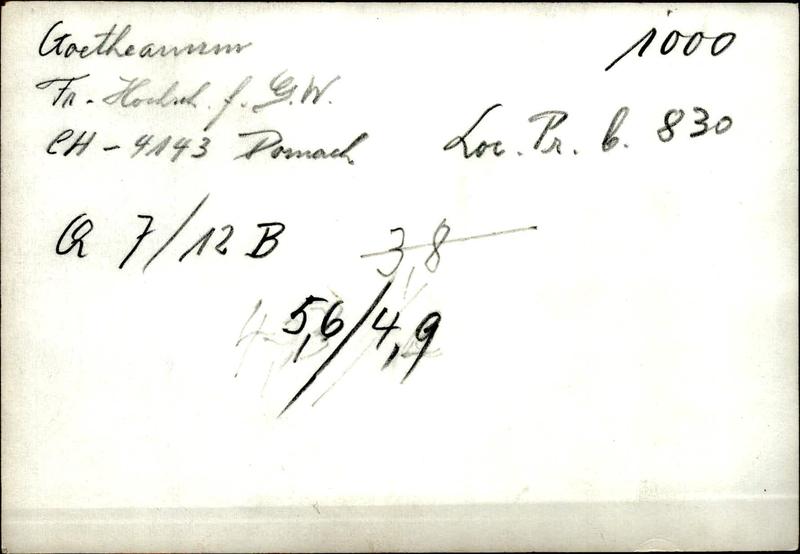 Goetheanum 1000
Fr. Hochsch. f. G.W.
CH - 4143 Dornach Loc. Pr. b. 830
7/12 B 3,8
5,6/4,9